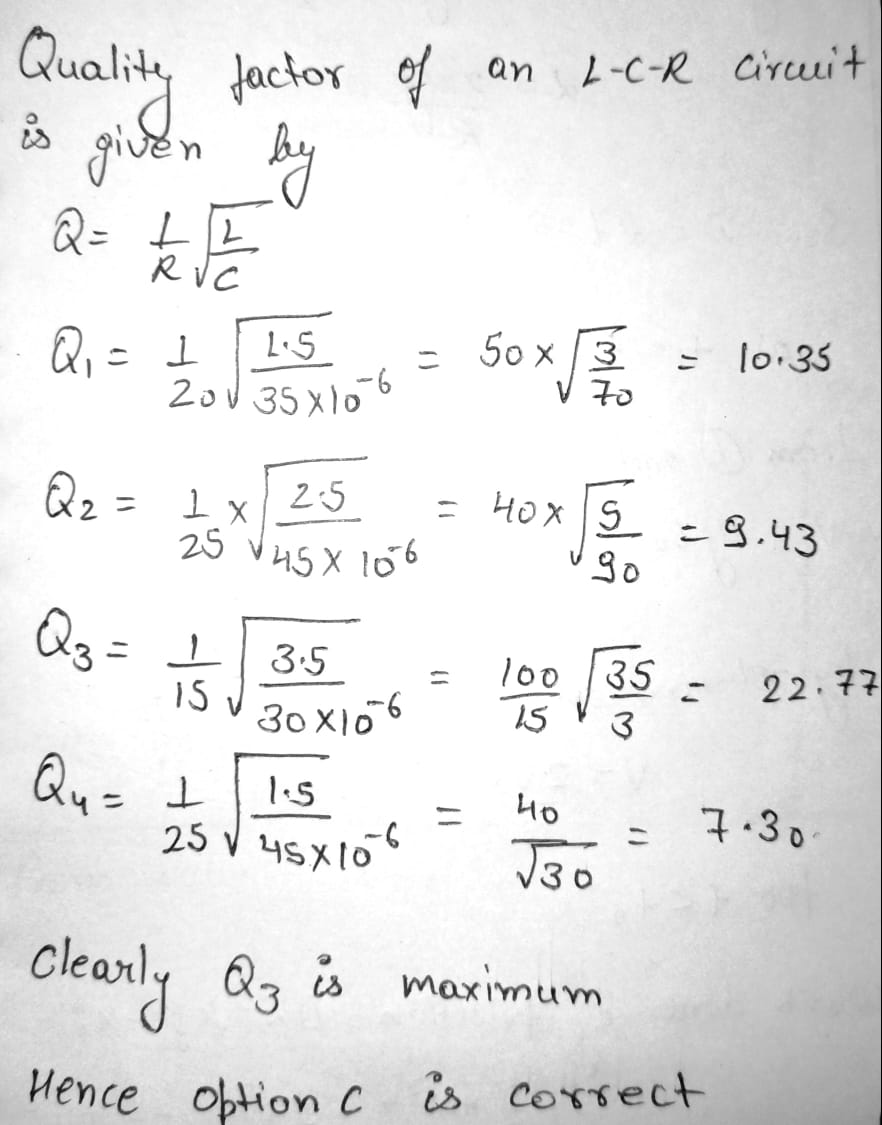 Quality factor of an L-C-R circuit
is given by
Q = 1/R √(L/C)
Q₁ = 1/20 √(1.5/(35×10⁻⁶)) = 50 × √(3/70) = 10.35
Q₂ = 1/25 × √(2.5/(45×10⁻⁶)) = 40 × √(5/90) = 9.43
Q₃ = 1/15 √(3.5/(30×10⁻⁶)) = 100/15 √(35/3) = 22.77
Q₄ = 1/25 √(1.5/(45×10⁻⁶)) = 40/√30 = 7.30
Clearly Q₃ is maximum
Hence option C is correct